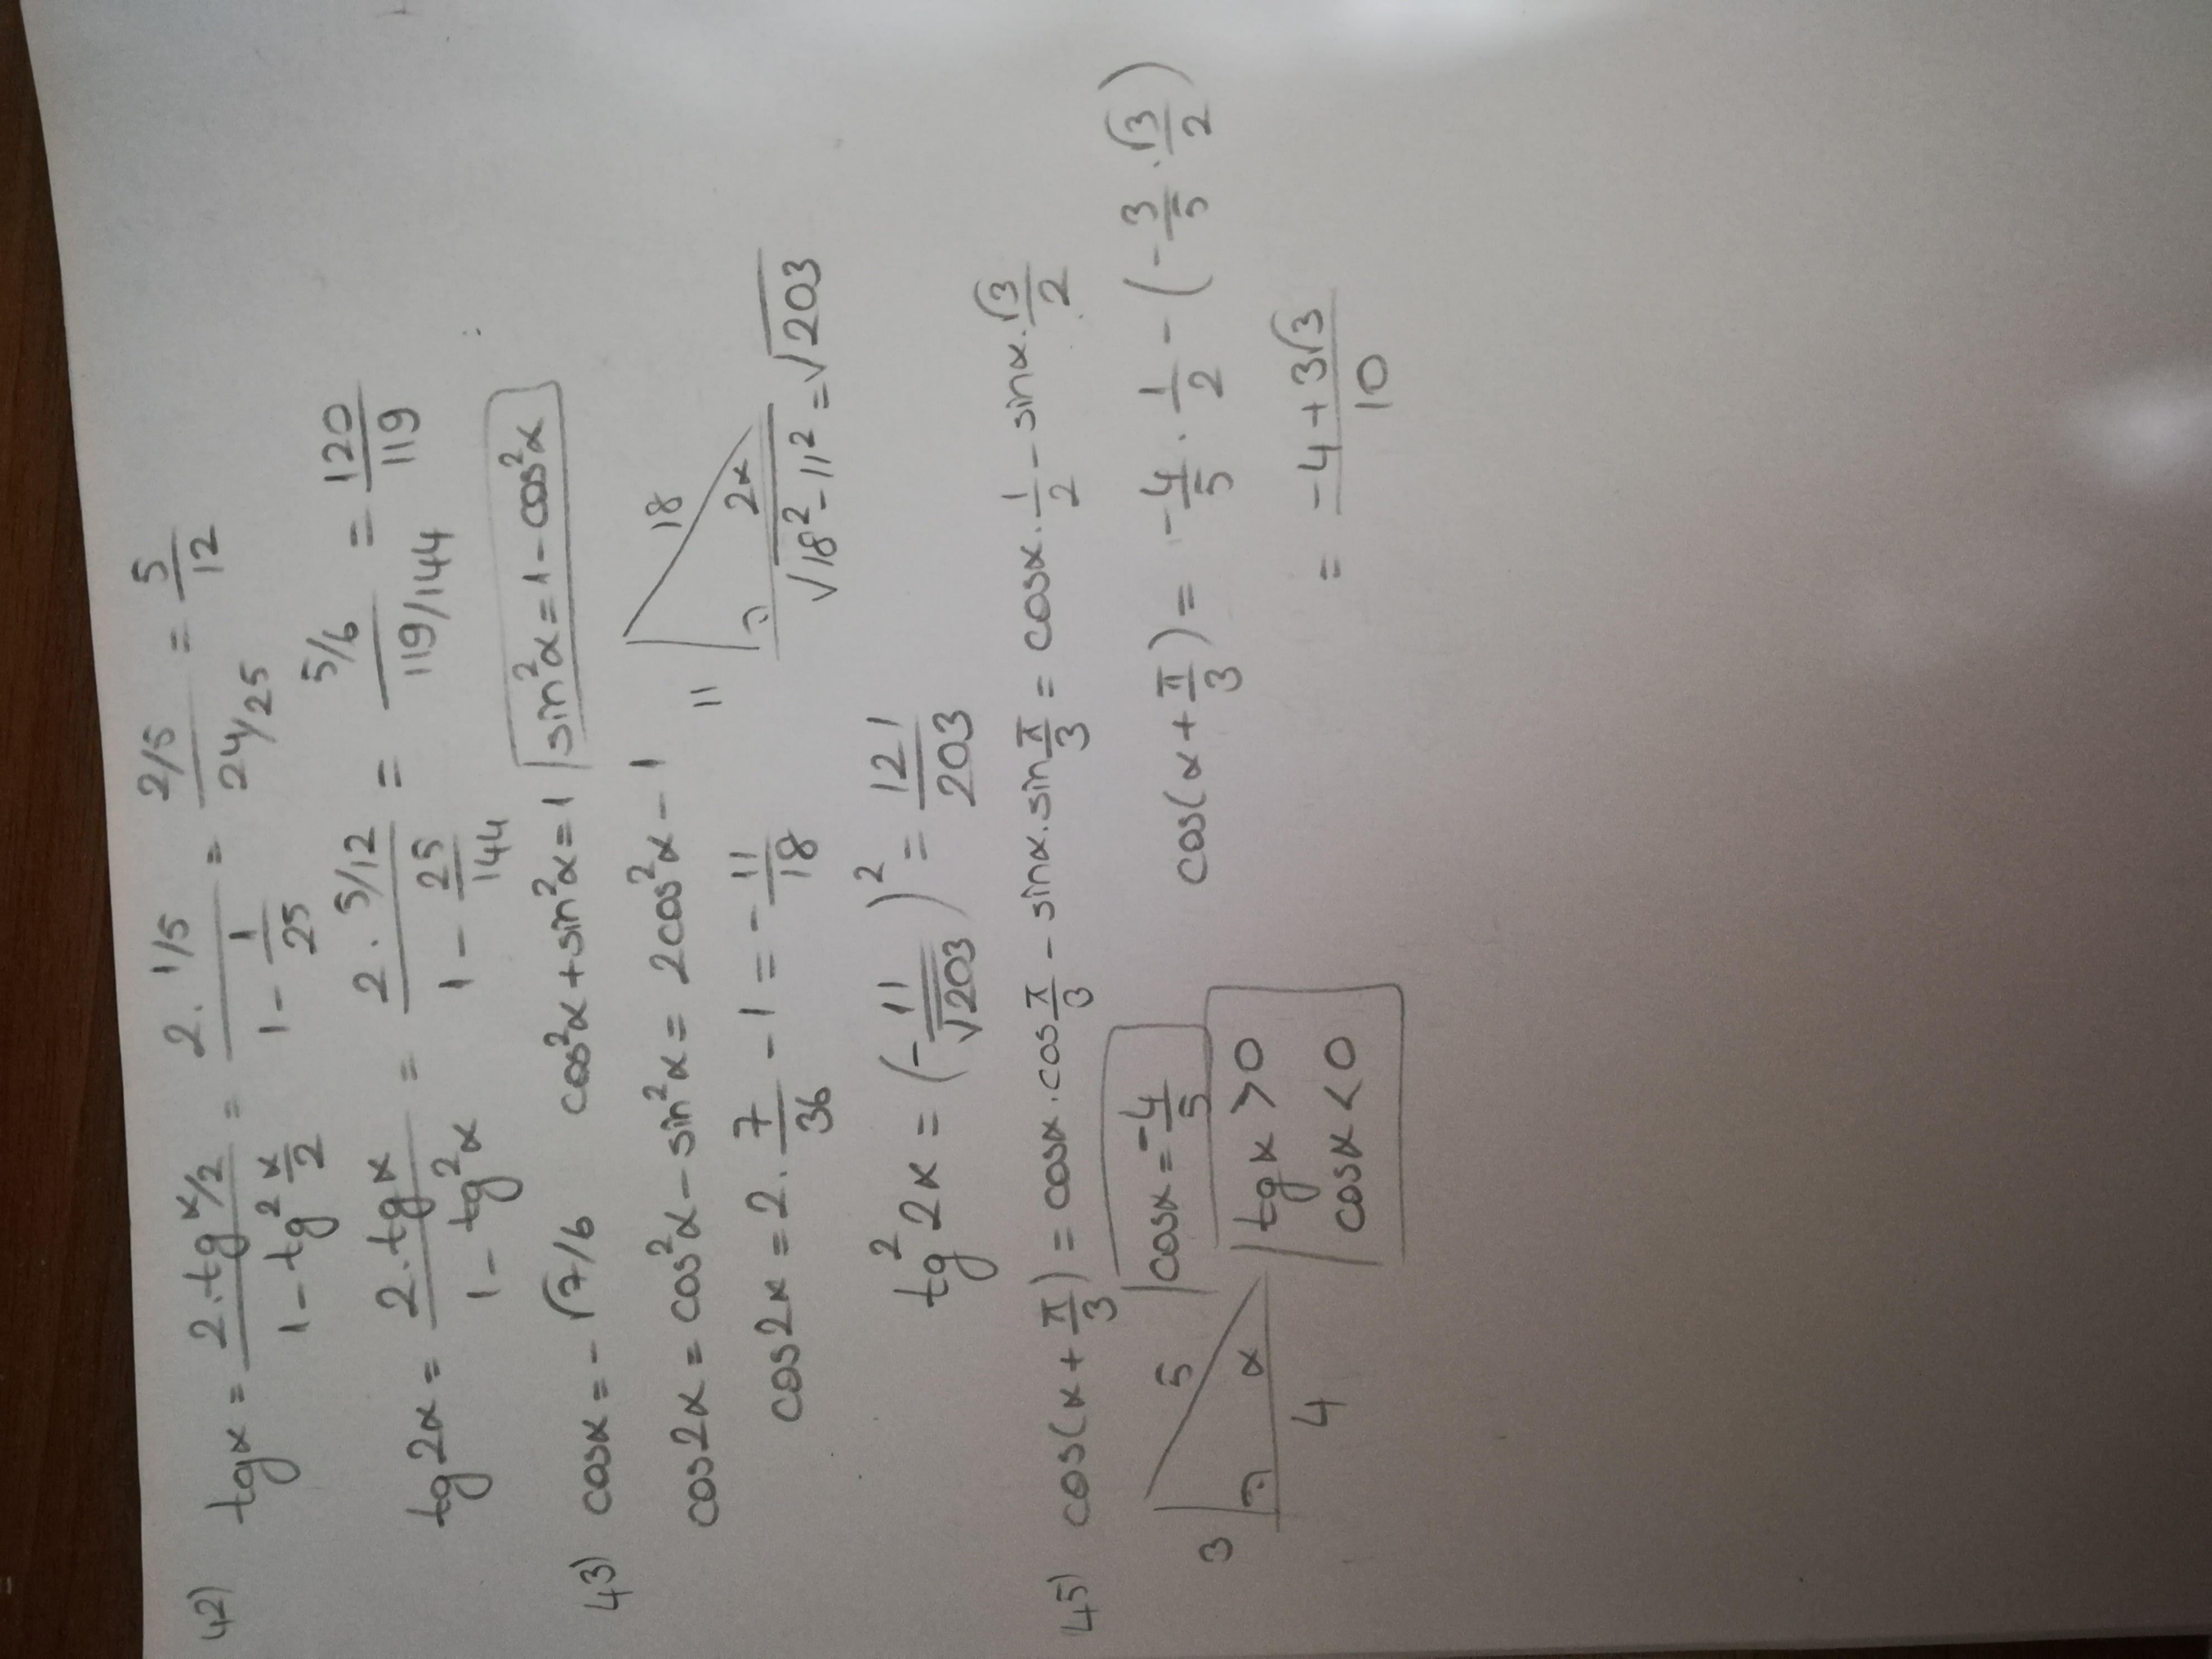 42) tgα = 2·tg α/2 / 1 - tg² α/2 = 2 · 1/5 / 1 - 1/25 = 2/5 / 24/25 = 5/12
tg2α = 2·tgα / 1 - tg²α = 2 · 5/12 / 1 - 25/144 = 5/6 / 119/144 = 120/119
43) cosα = -√7/6 cos²α + sin²α = 1 sin²α = 1 - cos²α
cos2α = cos²α - sin²α = 2cos²α - 1
cos2α = 2 · 7/36 - 1 = - 11/18
11 18 2α
√18² - 11² = √203
tg²2α = (- 11/√203)² = 121/203
45) cos(α + π/3) = cosα · cos π/3 - sinα · sin π/3 = cosα · 1/2 - sinα · √3/2
3 5 α 4
cosα = - 4/5
tgα > 0
cosα < 0
cos(α + π/3) = - 4/5 · 1/2 - (- 3/5 · √3/2)
= -4 + 3√3 / 10